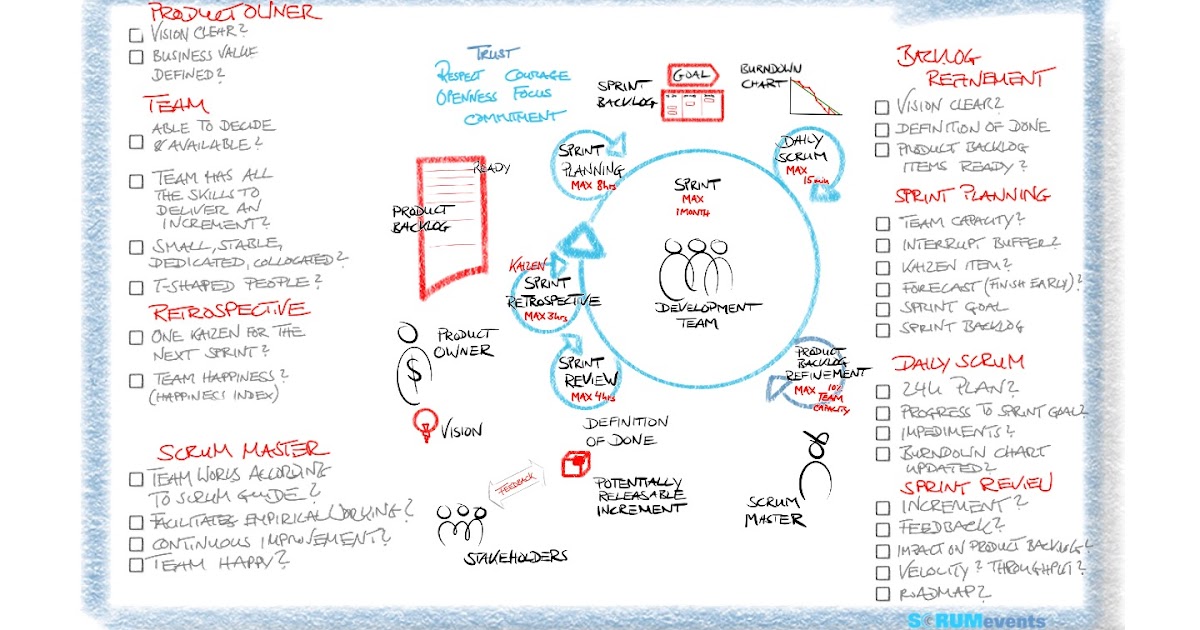 PRODUCT OWNER
VISION CLEAR?
BUSINESS VALUE
DEFINED?
TEAM
ABLE TO DECIDE
& AVAILABLE?
TEAM HAS ALL
THE SKILLS TO
DELIVER AN
INCREMENT?
SMALL, STABLE,
DEDICATED, COLLOCATED?
T-SHAPED PEOPLE?
RETROSPECTIVE
ONE KAIZEN FOR THE
NEXT SPRINT?
TEAM HAPPINESS?
(HAPPINESS INDEX)
SCRUM MASTER
TEAM WORKS ACCORDING
TO SCRUM GUIDE?
FACILITATES EMPIRICAL WORKING?
CONTINUOUS IMPROVEMENT?
TEAM HAPPY?
TRUST
RESPECT COURAGE
OPENNESS FOCUS
COMMITMENT
SPRINT
BACKLOG
GOAL
BURNDOWN
CHART
READY
PRODUCT
BACKLOG
SPRINT
PLANNING
MAX 8hrs
DAILY
SCRUM
MAX
15min
SPRINT
MAX
1 MONTH
DEVELOPMENT
TEAM
KAIZEN
SPRINT
RETROSPECTIVE
MAX 3hrs
SPRINT
REVIEW
MAX 4hrs
PRODUCT
BACKLOG
REFINEMENT
MAX 10%
TEAM
CAPACITY
PRODUCT
OWNER
$
VISION
DEFINITION
OF DONE
FEEDBACK
POTENTIALLY
RELEASABLE
INCREMENT
STAKEHOLDERS
SCRUM
MASTER
BACKLOG
REFINEMENT
VISION CLEAR?
DEFINITION OF DONE
PRODUCT BACKLOG
ITEMS READY?
SPRINT PLANNING
TEAM CAPACITY?
INTERRUPT BUFFER?
KAIZEN ITEM?
FORECAST (FINISH EARLY)?
SPRINT GOAL
SPRINT BACKLOG
DAILY SCRUM
24U PLAN?
PROGRESS TO SPRINT GOAL?
IMPEDIMENTS?
BURNDOWN CHART
UPDATED?
SPRINT REVIEW
INCREMENT?
FEEDBACK?
IMPACT ON PRODUCT BACKLOG?
VELOCITY? THROUGHPUT?
ROADMAP?
SCRUMevents